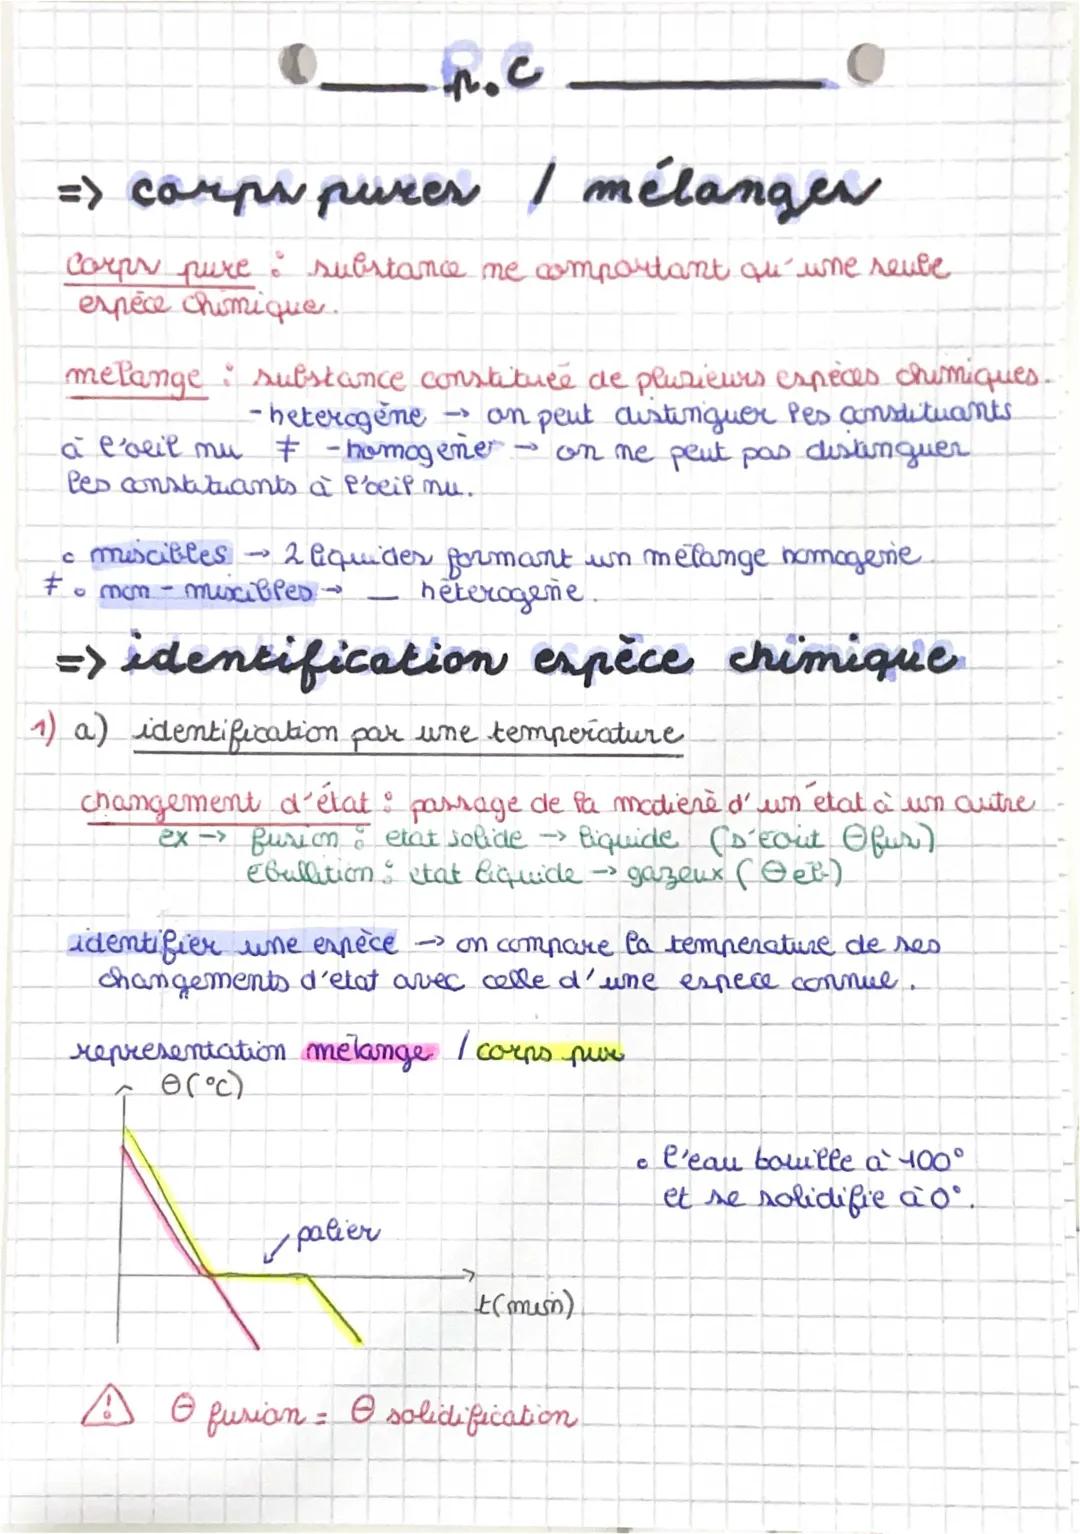 p.c
=> corps pures / mélanges
corps pure : substance ne comportant qu'une seule
espéce chimique.
mélange : substance constituée de plusieurs espèces chimiques.
- heterogéne → on peut distinguer les constituants
à l'oeil nu ≠ - homogene → on ne peut pas distinguer
les constituants à l'oeil nu.
○ miscibles → 2 liquides formant un mélange homogene.
≠ ○ non-miscibles → — héterogene.
=> identification espèce chimique
1) a) identification par une température
changement d'état : passage de la matière d'un état à un autre
ex → fusion : etat solide → liquide (s'ecrit θfus)
ébullition : etat liquide → gazeux (θeb)
identifier une espèce → on compare la temperature de ses
changements d'etat avec celle d'une espece connue.
representation mélange / corps pur
θ(°C)
• l'eau bouille à 100°
et se solidifie à 0°.
palier
t(min)
⚠ θ fusion = θ solidification